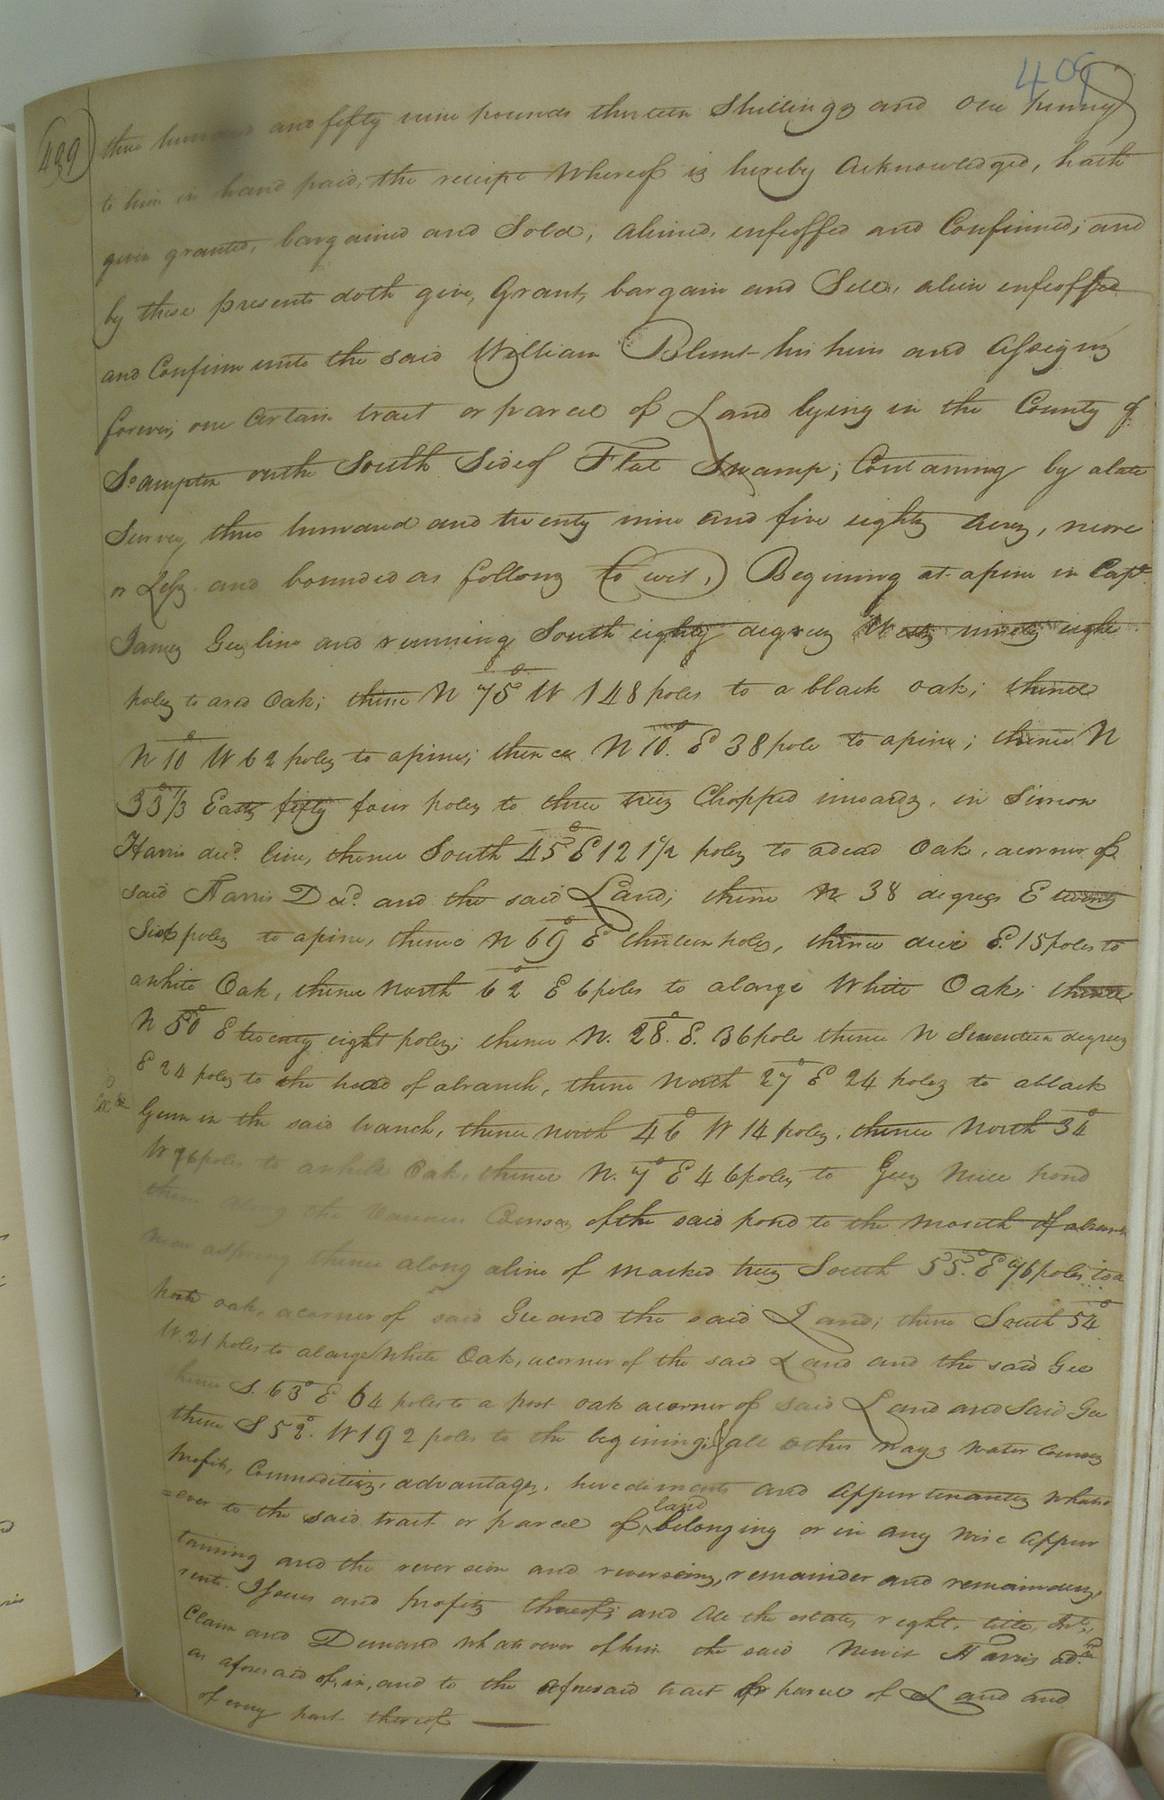 409
439
three hundred and fifty nine pounds thirteen Shillings and one penny
to him in hand paid, the receipt Whereof is hereby Acknowledged, hath
given granted, bargained and Sold, aliened, enfeoffed and Confirmed, and
by these presents doth give, Grant, bargain and Sell, alien enfeoffed
and Confirm unto the said William Blunt his heirs and Assigns
forever, one Certain tract or parcel of Land lying in the County of
So.ampton on the South Side of Flat Swamp; Containing by a late
Survey three hundred and twenty nine and five eighty Acres, more
or Less and bounded as follows (to wit,) Begining at a pine in Capt.
James Gees line and running South eighty degrees West ninety eight
poles to a red Oak; thence N 75° W 148 poles to a black oak; thence
N 10° W 62 poles to a pine; thence N 10° E 38 pole to a pine; thence N
33° 1/3 East fifty four poles to three trees Chopped inwards, in Simon
Harris decd. line, thence South 45° E 121 1/2 poles to a dead Oak, a corner of
said Harris Decd. and the said Land; thence N 38 degrees E twenty
Six poles to a pine, thence N 69° E thirteen poles, thence due E. 15 poles to
a white Oak, thence North 62° E 6 poles to a large White Oak; thence
N 50° E twenty eight poles; thence N. 28° E. 36 pole thence N Seventeen degrees
E 24 poles to the head of a branch, thence North 27° E 24 poles to a black
Gum in the said branch, thence north 46° W 14 poles, thence North 34°
W 76 poles to a white Oak, thence N. 7° E 46 poles to Gees Mill pond
thence along the various Courses of the said pond to the mouth of a branch
near a spring thence along a line of marked trees South 55° E 76 poles to a
oak, a corner of said Gee and the said Land; thence South 54°
W. 21 poles to a large White Oak, a corner of the said Land and the said Gee
thence S. 63° E 64 poles to a post oak a corner of said Land and Said Gee
thence S 52° W 192 poles to the begining; & all other ways water Courses
profits, Commodities, advantages, herediments and Appurtenantes whats
=ever to the said tract or parcel of land belonging or in any wise Appur
taining and the reversion and reversions, remainder and remainders,
rents. Issues and profits thereof; and All the estate, right, title, Int.,
Claim and Demand whatsoever of him the said Newit Harris ad.
as aforesaid of, in, and to the aforesaid tract or parcel of Land and
of every part thereof